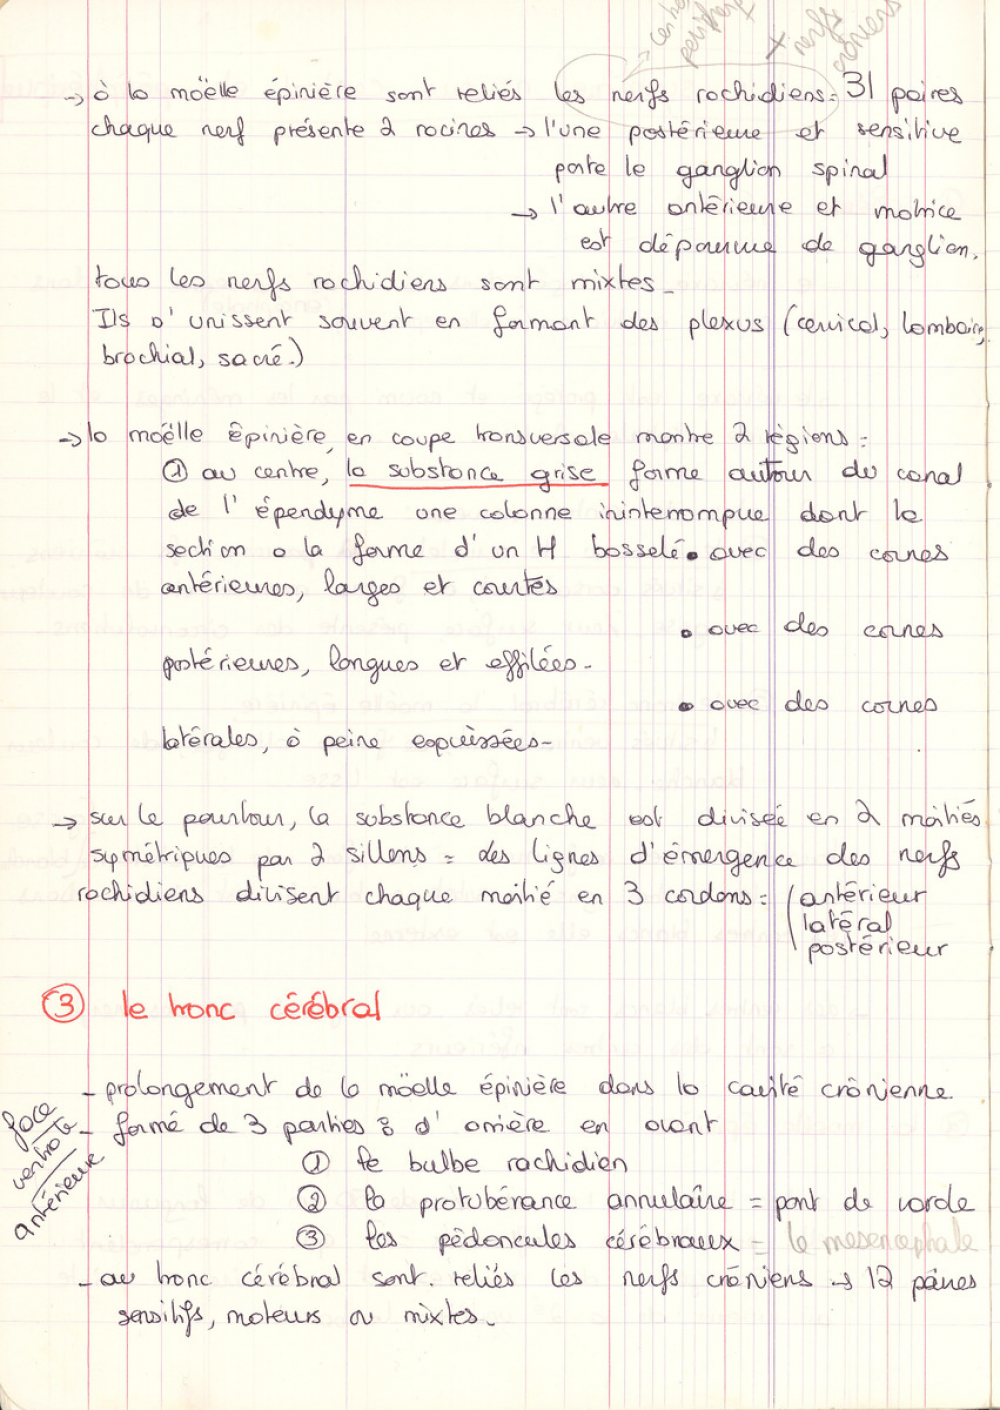 centre
périphérie
x nerfs
crâniens
→ à la moëlle épinière sont reliés les nerfs rachidiens : 31 paires
chaque nerf présente 2 racines → l'une postérieure et sensitive
porte le ganglion spinal
→ l'autre antérieure et motrice
est dépourvue de ganglion.
tous les nerfs rachidiens sont mixtes_
Ils s'unissent souvent en formant des plexus (cervical, lombaire,
brachial, sacré.)
→ la moëlle épinière, en coupe transversale montre 2 régions :
① au centre, la substance grise forme autour du canal
de l'épendyme une colonne ininterrompue dont la
section a la forme d'un H bosselé • avec des cornes
antérieures, larges et courtes
• avec des cornes
postérieures, longues et effilées -
• avec des cornes
latérales, à peine esquissées -
→ sur le pourtour, la substance blanche est divisée en 2 moitiés
symétriques par 2 sillons = des lignes d'émergence des nerfs
rachidiens divisent chaque moitié en 3 cordons : antérieur
latéral
postérieur
③ le tronc cérébral
- prolongement de la moëlle épinière dans la cavité crânienne
- formé de 3 parties : d'arrière en avant
face
ventrale
antérieure
① le bulbe rachidien
② la protubérance annulaire = pont de varole
③ les pédoncules cérébraux = le mesencephale
- au tronc cérébral sont reliés les nerfs crâniens → 12 paires
sensitifs, moteurs ou mixtes.